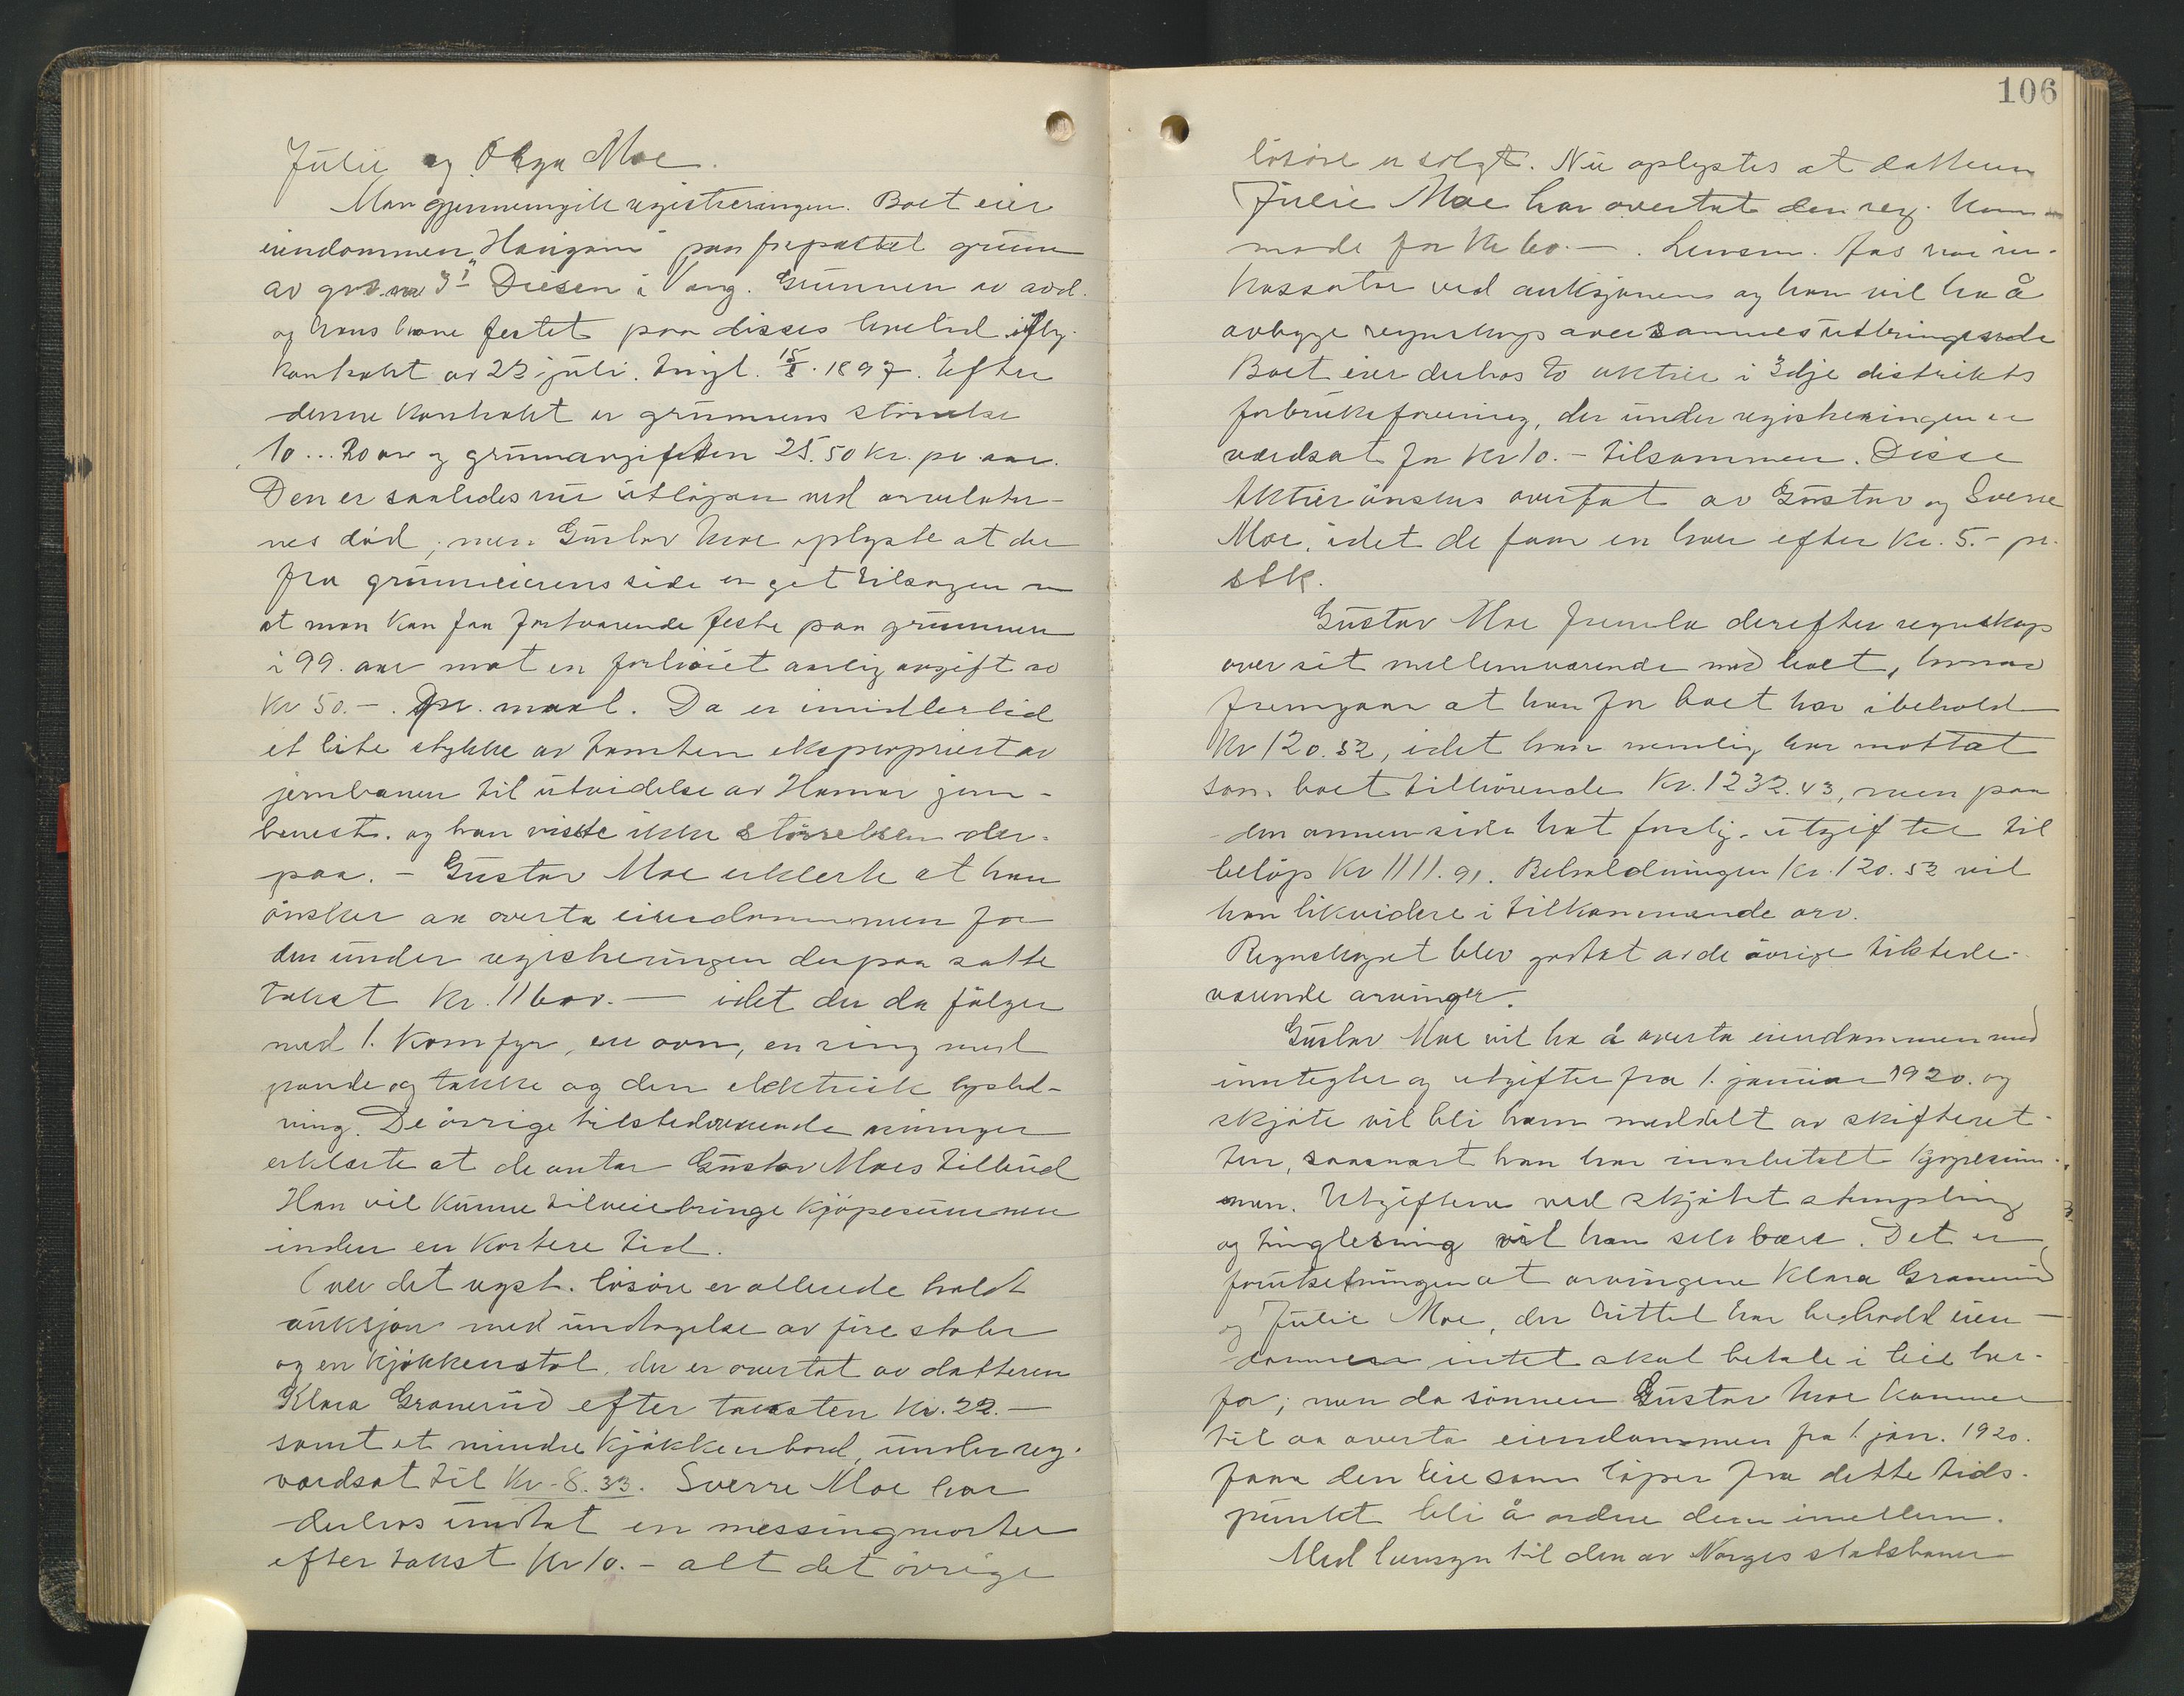 Julie og Olga Moe.
Man gjennemgik registreringen. Boet eier
eiendommen "Havigam" paa frapaktet grunn
av grs. nr 3 1 Disen i Vang. Grunnen er avd.
og hans kone festet paa disses levetid ifly.
kontrakt av 23 juli. tingl. 15/8. 1897. Efter
denne kontrakt er grunnens störrelse
10 ... 20 ar og grunnavgiften 25.50 kr. pr. aar.
Den er saaledes nu utlöpen ved arvelater-
nes död, men Gustav Moe oplyste at der
fra grunneierens side er get tilsagn om
at man kan faa fortvarende feste paa grunnen
i 99 aar mot en forhöiet aarlig avgift av
Kr 50.-. pr. maal. Da er imidlertid
et lite stykke av tomten ekspropriert av
jernbanen til utvidelse av Hamar jern-
banest. og han visste ikke störrelsen der-
paa. - Gustav Moe erklerte at han
önsker aa overta eiendommen for
den under registreringen derpaa satte
takst Kr. 11600.- idet der da fölger
med 1. komfyr, en ovn, en ring med
pande og takke og den elektrisk lysled-
ning. De övrige tilstedeværende arvinger
erklærte at de antar Gustav Moes tilbud
Han vil kunne tilveiebringe kjöpesummen
inden en kortere tid.
Over det regst. lösöre er allerede holdt
auksjon med undtagelse av fire stoler
og en kjökkenstol, der er overtat av datteren
Klara Granerud efter taksten Kr. 22.-
samt et mindre kjökkenbord, under reg.
værdsat til Kr. 8.33. Sverre Moe har
derhos undtat en messingmorter
efter takst Kr 10.- alt det övrige
106
lösöre er solgt. Nu oplystes at datteren
Julie Moe har overtat den reg. kom-
mode for Kr 60.-. Lensm. Aas var in-
kassator ved auksjonen og han vil ha å
avlægge regnskap over sammes utbringende
Boet eier derhos to aktier i 3dje distrikts
forbruksforening, der under registreringen er
værdsat for Kr 10.- tilsammen. Disse
Aktier önskes overtat av Gustav og Sverre
Moe, idet de faar en hver efter Kr. 5.- pr.
stk.
Gustav Moe fremla derefter regnskap
over sit mellemværende med boet, hvorav
fremgaar at han for boet har ibehold
Kr 120.52, idet han nemlig har mottat
som boet tilhörende Kr. 1232.43, men paa
den annen side hat forslj. utgifter til
belöp Kr 1111.91. Beholdningen Kr. 120.52 vil
han likvidere i tilkommende arv.
Regnskapet blev godtat av de övrige tilstede-
værende arvinger.
Gustav Moe vil ha å overta eiendommen med
inntegter og utgifter fra 1. januar 1920. og
skjöte vil bli ham meddelt av skifteret-
ten, saasnart han har innbetalt kjöpesum-
men. Utgiftene ved skjötet stempling
og tinglesning vil han selv bære. Det er
forutsetningen at arvingene Klara Granerud
og Julie Moe, der hittil har bebodd eien-
dommen intet skal betale i leie her-
for; men da sönnen Gustav Moe kommer
til aa overta eiendommen fra 1. jan. 1920.
faar den leie som löper fra dette tids-
punkt bli å ordne dem imellem.
Med hensyn til den av Norges statsbaner